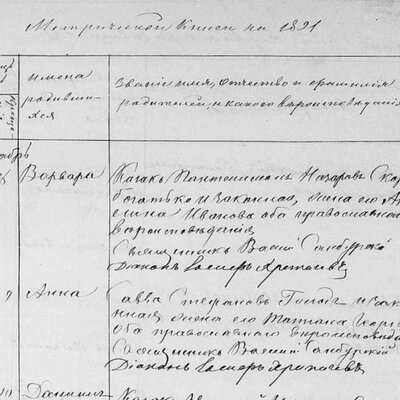 Метрической Книги на 1891
имена родившихся
Званіе, имя, отчество и фамилія
родителей, и какого вѣроисповѣданія
Варвара
Козакъ Пантелеимонъ Назаровъ Ско
богатько и законная жена его
Иванова оба православнаго
вѣроисповѣданія
Священникъ Василій Самбурскій
Діаконъ
9
Анна
Савва Стефановъ и зак
нная жена его Татіана Георг
оба православнаго вѣроисповѣда
Священникъ Василій Самбурскій
Діаконъ
10
Даніилъ
Козакъ